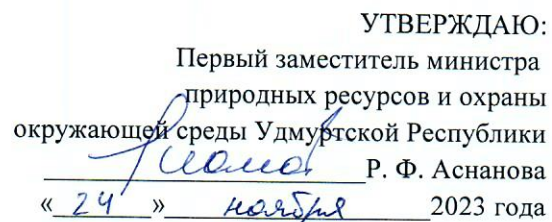 УТВЕРЖДАЮ:
Первый заместитель министра
природных ресурсов и охраны
окружающей среды Удмуртской Республики
Р. Ф. Аснанова
« 24 » ноября 2023 года